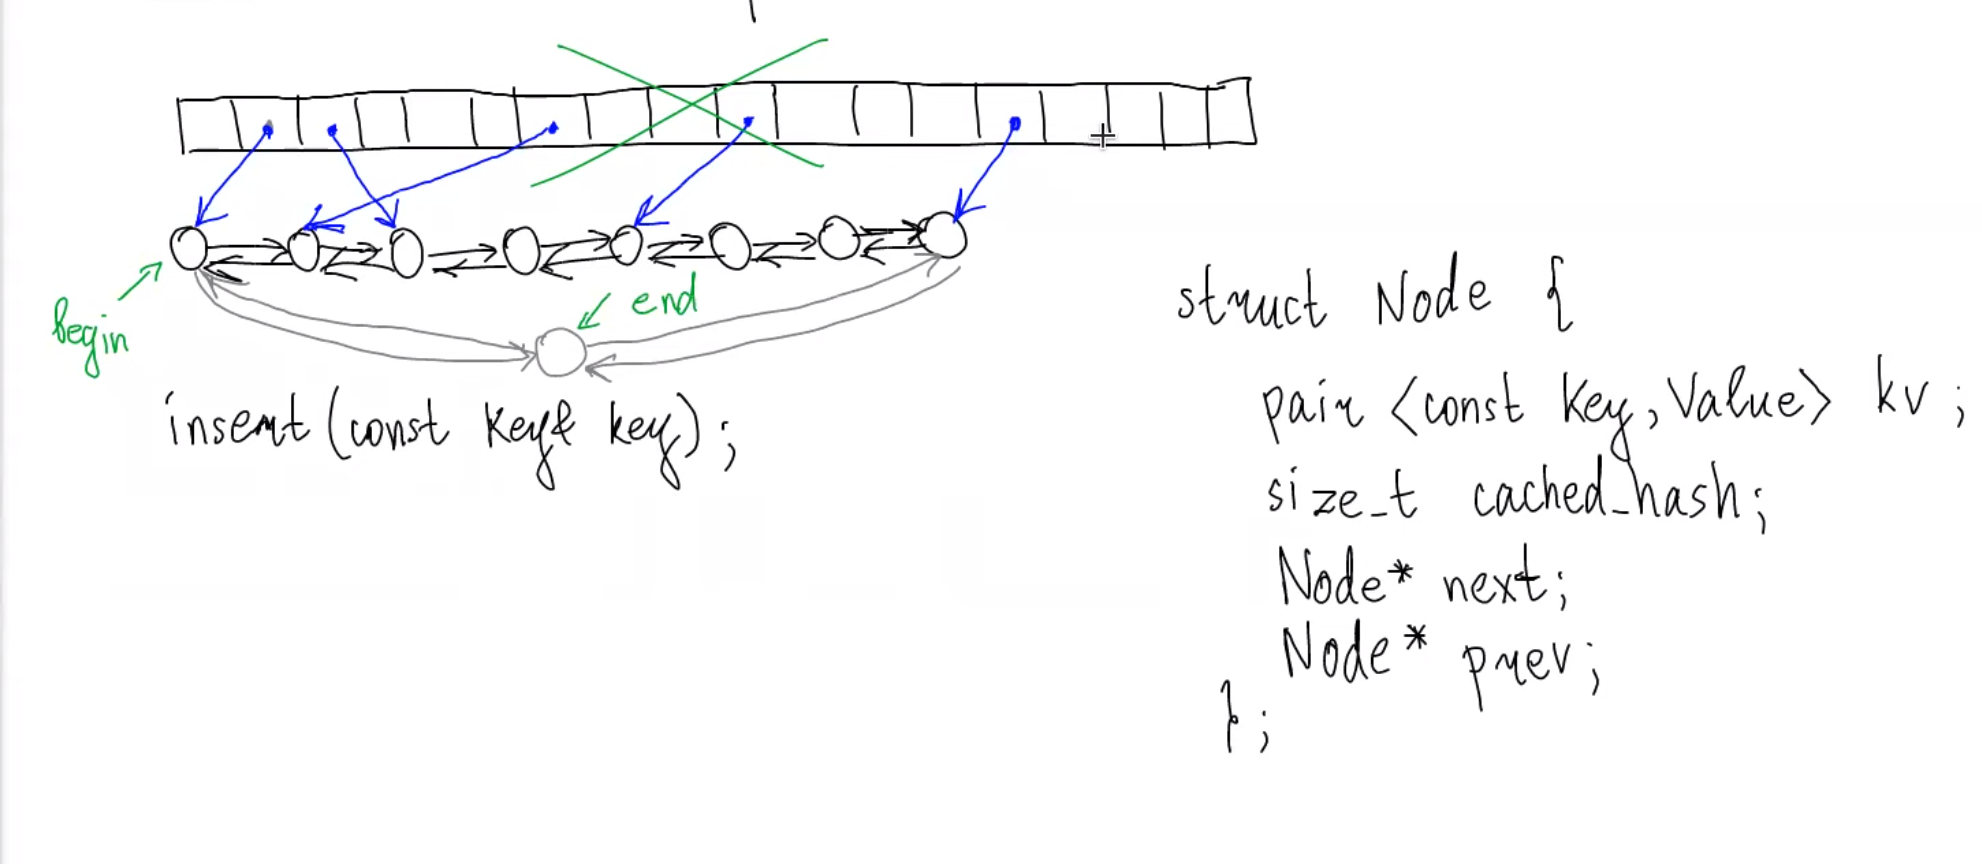 begin
end
insert (const Key& key);
struct Node {
pair <const Key, Value> kv;
size_t cached_hash;
Node* next;
Node* prev;
};